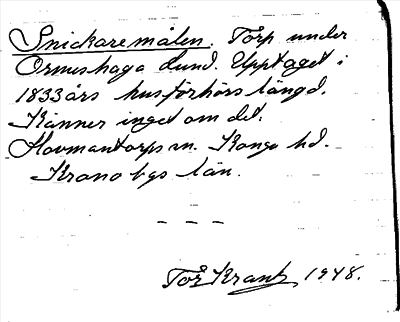 Snickaremålen. Torp under
Ormeshaga Lund. Upptaget i
1833 års husförhörslängd.
Känner inget om det.
Hovmantorps sn. Konga hd.
Kronobgs län.
— — —
Tor Krantz 1948.